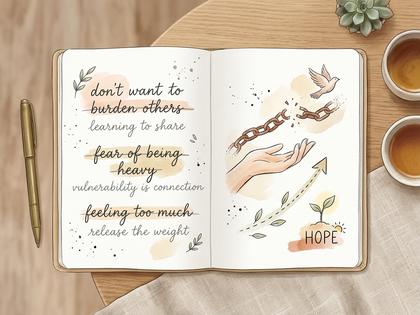 don't want to
burden others
learning to share
fear of being
heavy
vulnerability is connection
feeling too much
release the weight
HOPE